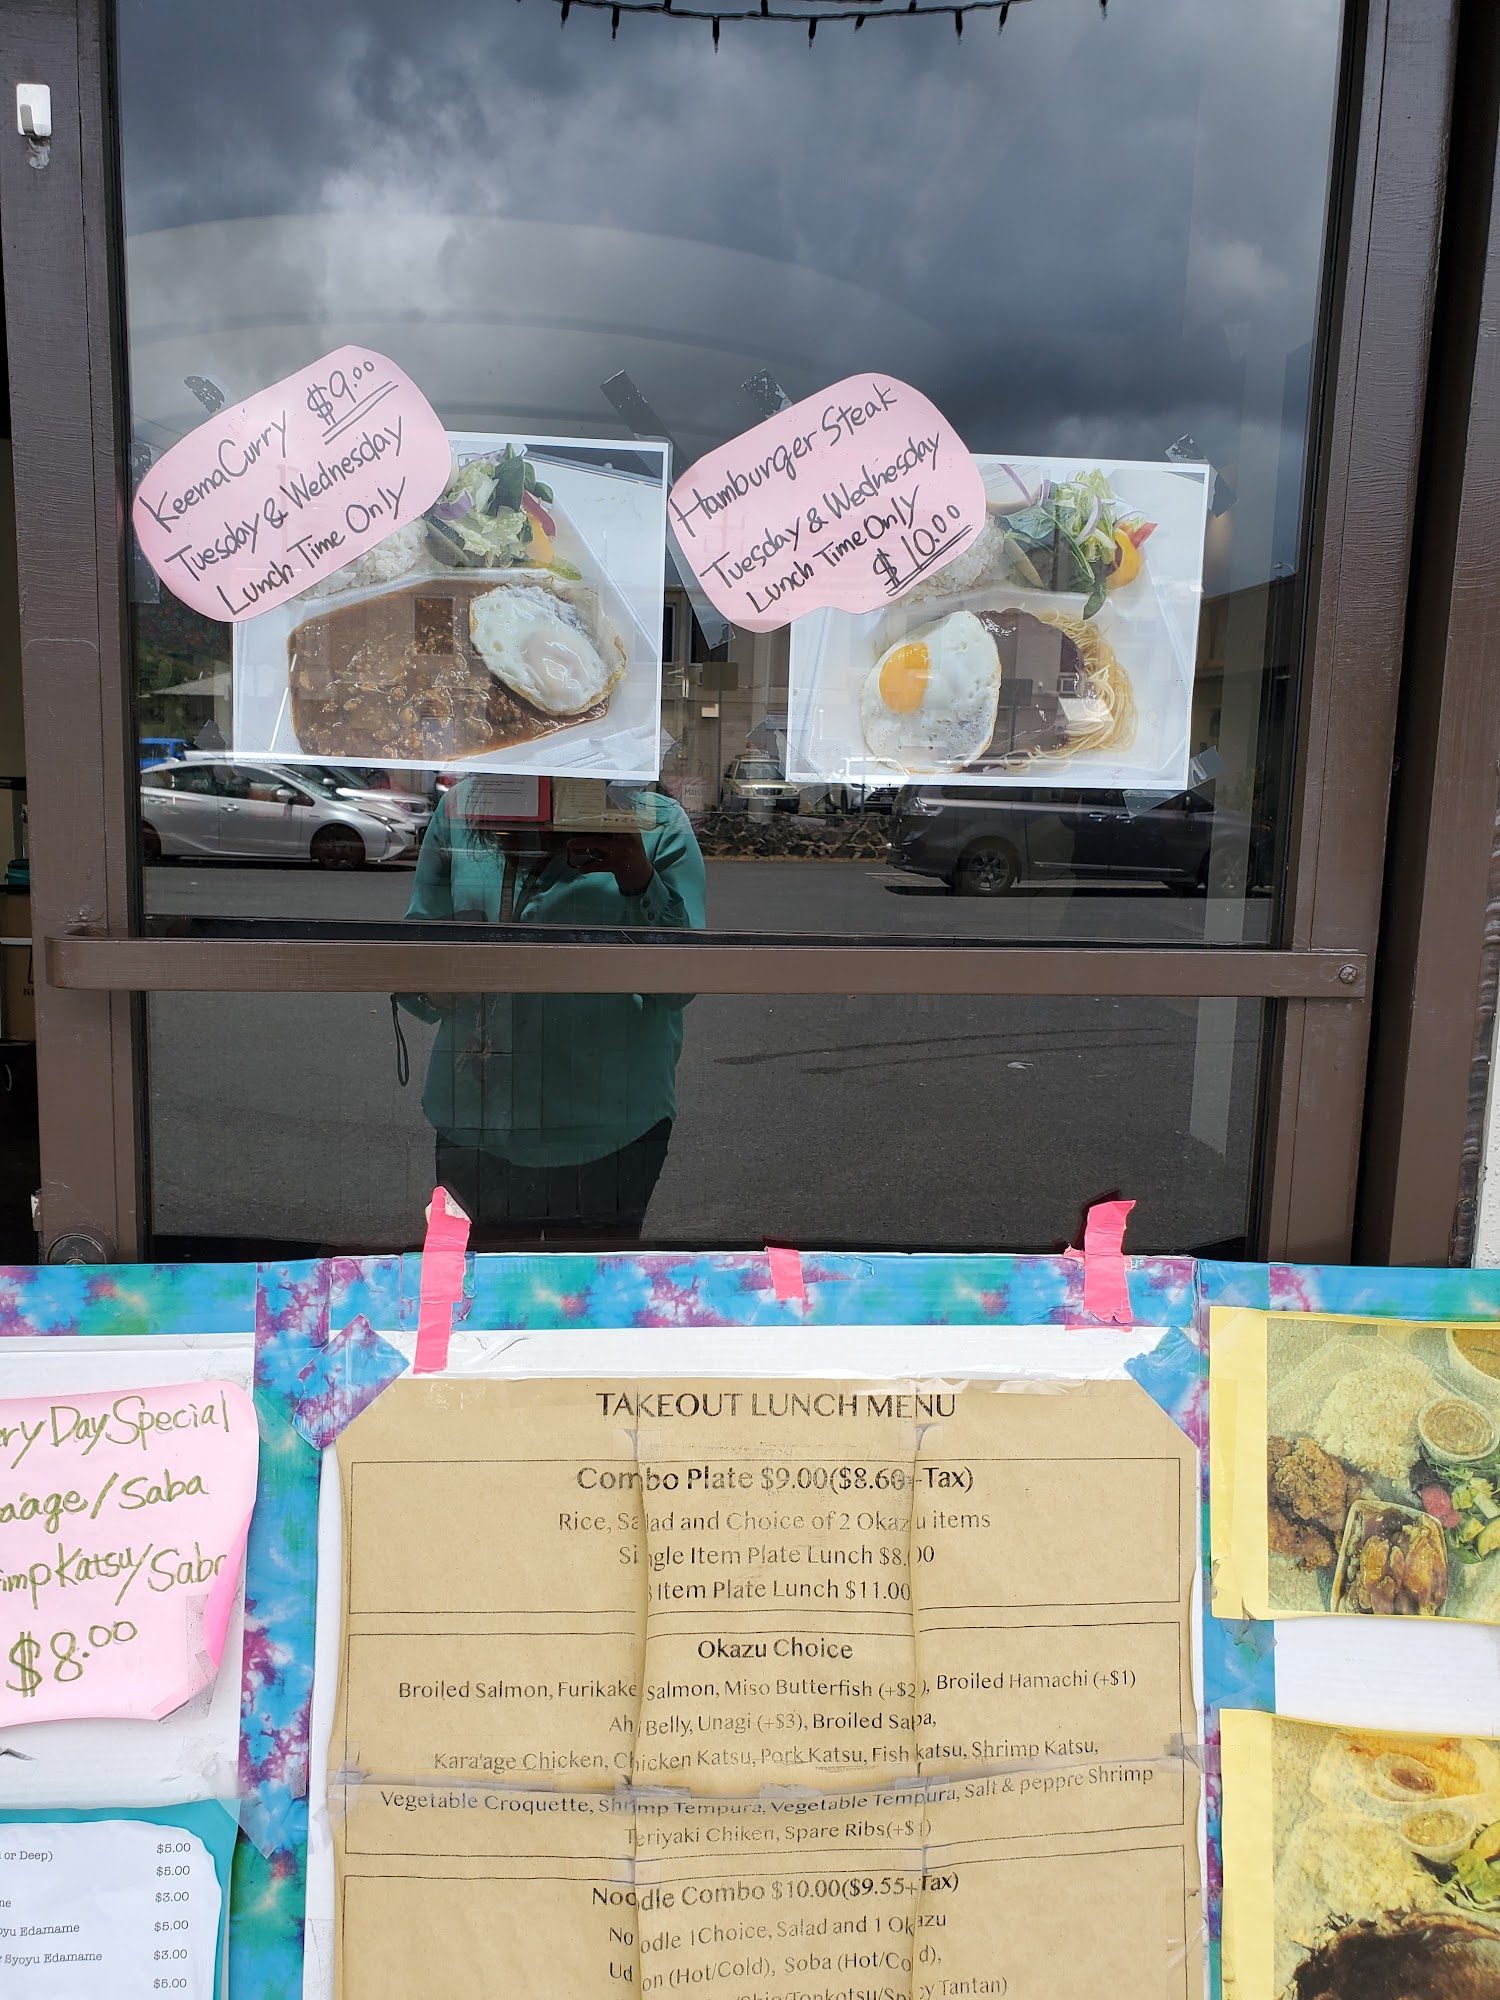 KeemaCurry $9.00
Tuesday & Wednesday
Lunch Time Only
Hamburger Steak
Tuesday & Wednesday
Lunch Time Only
$10.00
Day Special
/Saba
Katsu/
$8.00
or Deep) $5.00
$5.00
$3.00
Edamame $5.00
Syoyu Edamame $3.00
$5.00
TAKEOUT LUNCH MENU
Combo Plate $9.00($8.60+Tax)
Rice, Salad and Choice of 2 Okazu items
Single Item Plate Lunch $8.00
Item Plate Lunch $11.00
Okazu Choice
Broiled Salmon, Furikake Salmon, Miso Butterfish (+$2), Broiled Hamachi (+$1)
Ahi Belly, Unagi (+$3), Broiled Saba,
Kara'age Chicken, Chicken Katsu, Pork Katsu, Fish katsu, Shrimp Katsu,
Vegetable Croquette, Shrimp Tempura, Vegetable Tempura, Salt & peppre Shrimp
Teriyaki Chiken, Spare Ribs(+$1)
Noodle Combo $10.00($9.55+Tax)
Noodle 1Choice, Salad and 1 Okazu
Udon (Hot/Cold), Soba (Hot/Cold),
/Tonkotsu/Spicy Tantan)